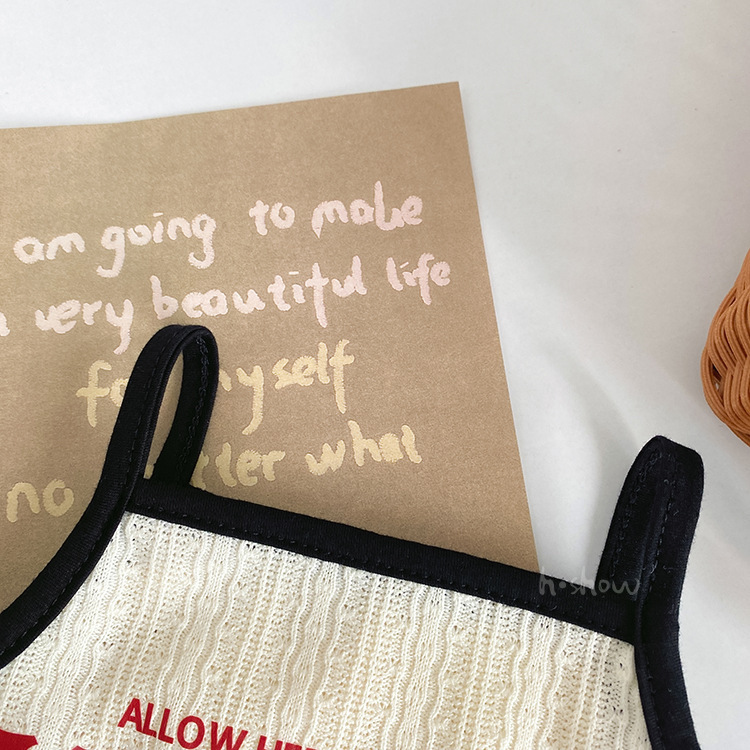 am going to make
very beautiful life
for myself
no matter what
h·show
ALLOW HER